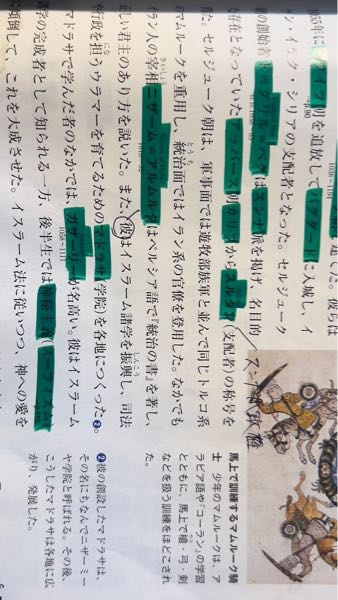 彼らは
1055年にブワイフ朝を追放してバグダードに入城し、イ
p.90
ン・イラク・シリアの支配者となった。セルジューク
1038~1194
朝の創始者トゥグリル=ベクはスンナ派を掲げ、名目的
な存在となっていたアッバース朝カリフからスルタン(支配者)の称号を
た。セルジューク朝は、軍事面では遊牧部族軍と並んで同じトルコ系
のマムルークを重用し、統治面ではイラン系の官僚を登用した。なかでも
イラン人の宰相ニザーム=アルムルクはペルシア語で『統治の書』を著し、
正しい君主のあり方を説いた。また、彼はイスラーム諸学を振興し、司法
や行政を担うウラマーを育てるためのマドラサ(学院)を各地につくった❷。
マドラサで学んだ者のなかでは、ガザーリーが名高い。彼はイスラーム
1058~1111
諸学の完成者として知られる一方、後半生では神秘主義(スーフィズム)
に傾倒して、これを大成させた。イスラーム法に従いつつ、神への愛を
スンナ派政権
馬上で訓練するマムルーク騎
士 少年のマムルークは、ア
ラビア語や『コーラン』の学習
とともに、馬上で槍・弓・剣
などを扱う訓練をほどこされ
た。
❷彼の創設したマドラサは
その名にちなんでニザーミー
ヤ学院と呼ばれる。その後、
こうしたマドラサは各地に広
がり、発展した。